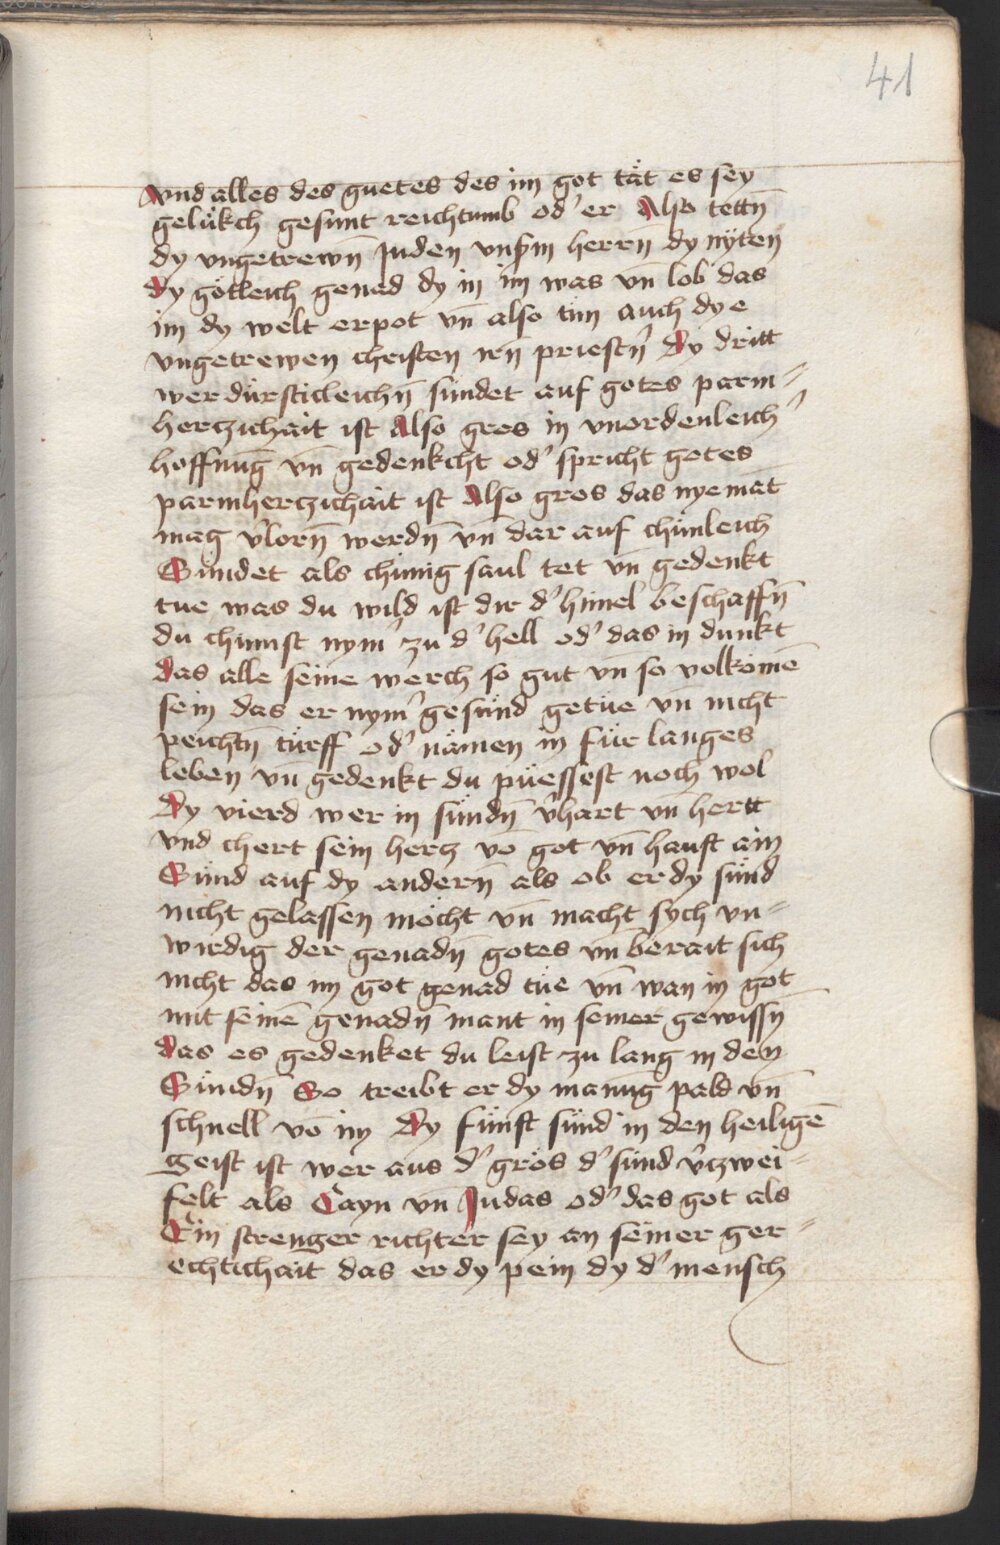 41
vnd alles des guetes des im got tät es sey
gelükch gesunt reichtumb od' er Also tettn̄
dy vngetrewn̄ Juden vnsm̄ herrn̄ dy nÿten
dy götleich genad dy in im was vn̄ lob das
im dy welt erpot vn̄ also tun auch dye
vngetrewen christen irn̄ priestn̄' Dy dritt
wer dürsticleichn̄ sündet auf gotes parm-
herczichait ist Also gros in vnordenleich'
hoffnūg vn̄ gedenkcht od' spricht gotes
parmherczichait ist Also gros das nyemāt
mag v'lorn̄ werdn̄ vn̄ dar auf chünleich
Sündet als chünig saul tet vn̄ gedenkt
tue was du wild ist dir d' himel beschaffn̄
du chumst nym' zu d' hell od' das in dunkt
das alle seine werch so gut vn̄ so volkömē
sein das er nym' gesünd getüe vn̄ nicht
peichtn̄ türff od' nämen in für langes
leben vn̄ gedenkt du püessest noch wol
Dy vierd wer in sündn̄ v'hart vn̄ hertt
vnd chert sein hercz vō got vn̄ hauft ain
Sünd auf dy andern̄ als ob er dy sünd
nicht gelassen möcht vn̄ macht sych vn-
wirdig der genadn̄ gotes vn̄ berait sich
nicht das im got genad tüe vn̄ wan in got
mit seinē genadn̄ mant in seiner gewissn̄
das es gedenket du leist zu lang in den
Sündn̄ So treibt er dy manūg pald vn̄
schnell vō im Dy fünft sünd in den heiligē
geist ist wer aus d' grös d' sünd v'czwei-
felt als Cayn vn̄ Judas od' das got als
Ein strenger richter sey an seiner ger-
echtichait das er dy pein dy d' mensch